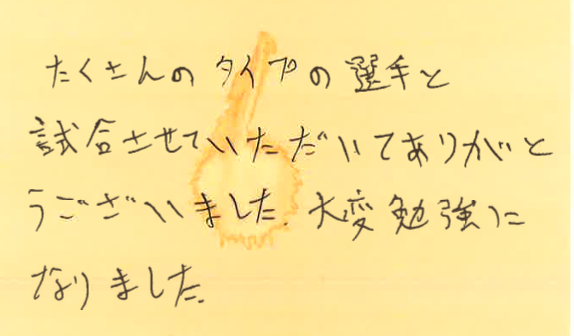 たくさんのタイプの選手と
試合させていただいてありがと
うございました.大変勉強に
なりました.